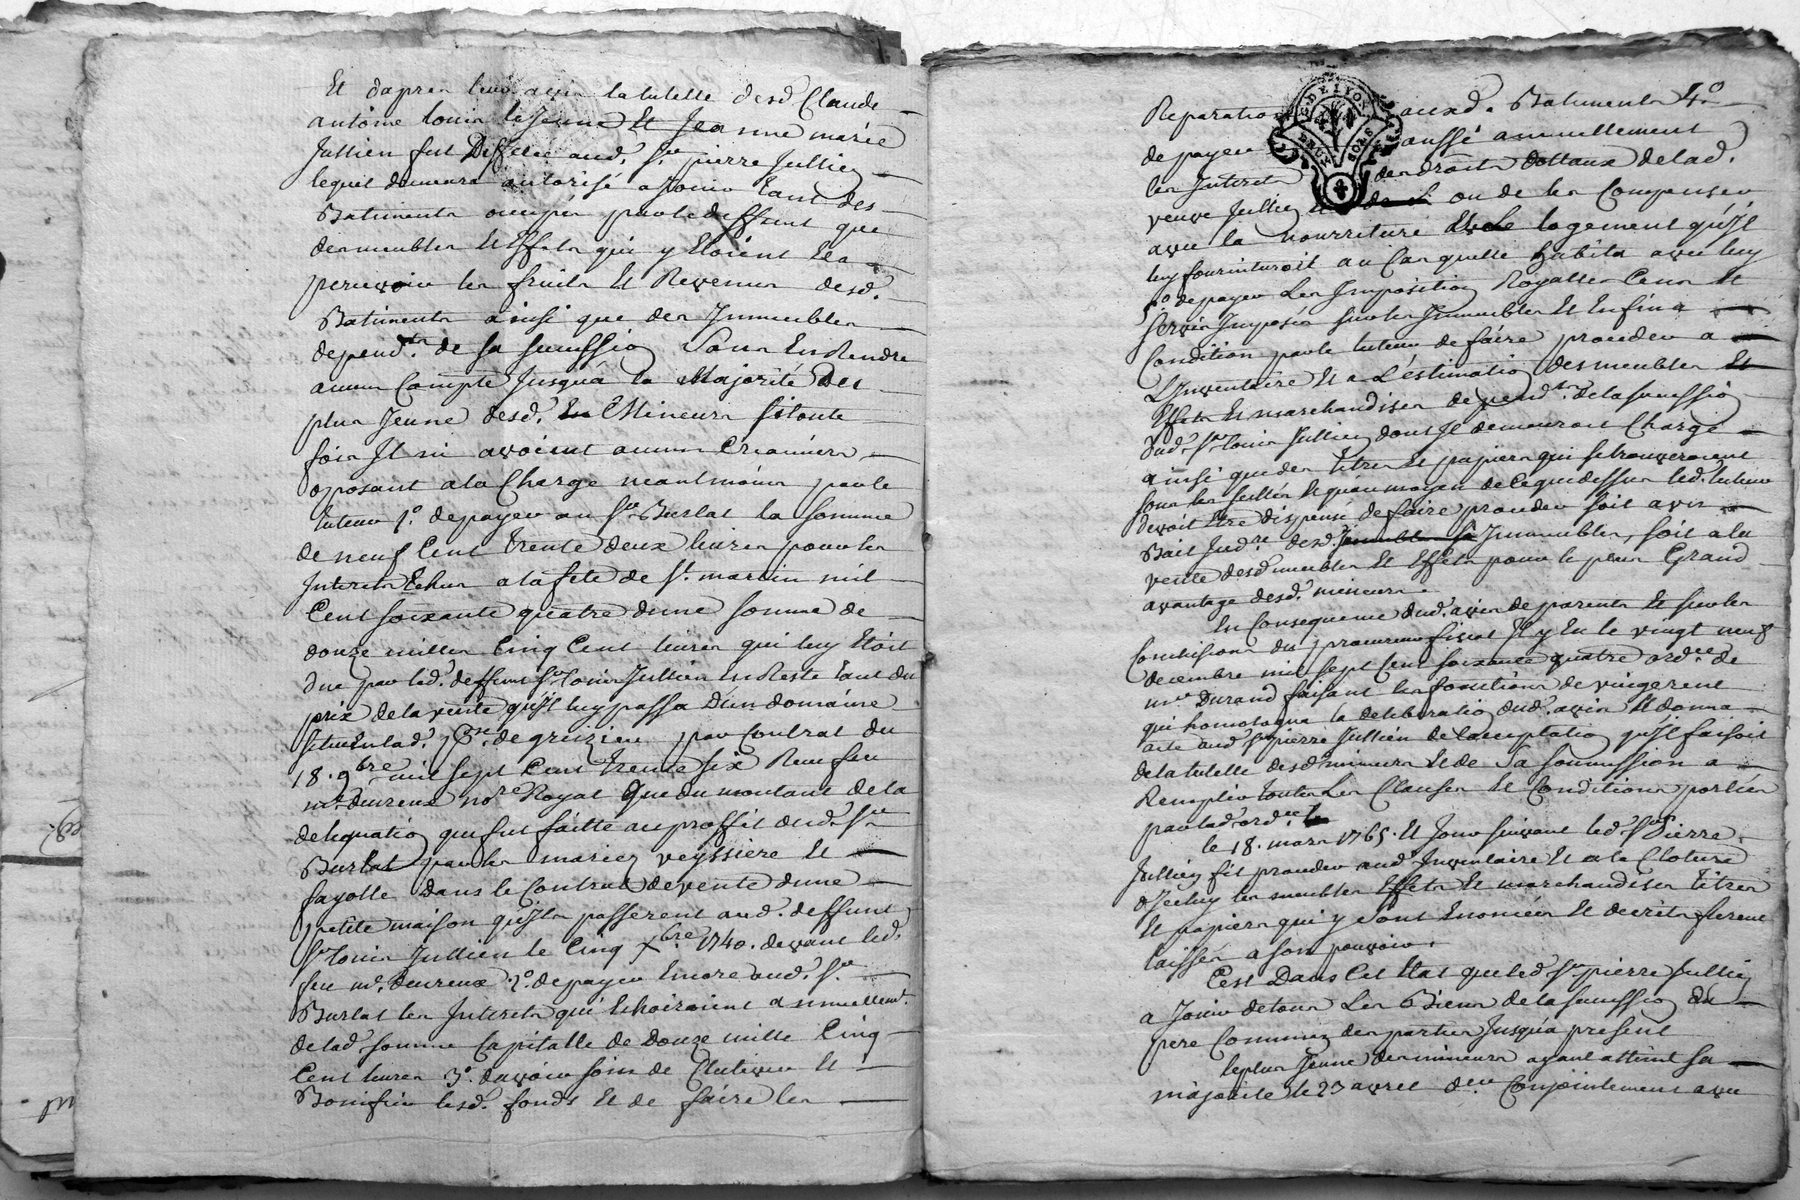 Et dapres leur avis la tutelle desd. Claude
antoine louis lejeune Et Jeanne marie
Jullien fut Differée aud. Sr. pierre Jullien
lequel demeura autorisé a Jouir tant des
Batiments occupés par le deffunt que
des meubles Et Effets qui y Etoient Et a
percevoir les fruits Et Revenus desd.
Batiments ainsi que des Immeubles
depend.ts de sa succession Sans En Rendre
aucun Compte Jusqu'a la Majorité Du
plus Jeune desd. Mineurs si toute
fois Il ni avoient aucun Créanciers
oposant a la Charge neantmoins par le
tuteur 1o. de payer au Sr. Burlat la somme
de neuf Cent trente deux livres pour les
Interets Echus a la fete de St. martin mil
Cent soixante quatre dune somme de
douze milles Cinq Cent livres qui luy Etoit
due par led. deffunt Sr. louis Jullien En Reste tant du
prix de la vente qu'il luy passa D'un domaine
situé En lad. psse. de greizieu par Contrat du
18. 9bre mil sept Cent trente six Reçu feu
mr. deureux nore Royal Que du montant de la
delegation qui fut faitte au proffit dud. Sr.
Burlat par les mariez veyssiere Et
fayolle Dans le Contrat de vente dune
petite maison qu'ils passerent aud. deffunt
Sr. louis Jullien le Cinq xbre. 1740. devant led.
feu mr. deureux 2o. de payer Encore aud. Sr.
Burlat les Interets qui Echoiroient annuellemt.
de lad. somme Capitalle de Douze mille Cinq
Cent livres 3o. davoir soin de Cultiver Et
Bonifier lesd. fonds Et de faire les
Reparations auxd. Batiments 4o.
de payer aussé annuellement
les Interet des droits dottaux de lad.
veuve Jullien ou de les Compenser
avec la nourriture Et le logement qu'il
luy fourniroit au Cas quelle habita avec luy
5o. de payer Les Imposition Royalles Cens Et
servis Imposés sur les Immeubles Et Enfin a
Condition par le tuteur de faire proceder a
L'Inventaire Et a L'éstimation Des meubles Et
Effets Et marchandises depend.ts de la succession
dud. Sr. louis Jullien dont Il demeurera Chargé
ainsi que des titres Et papiers qui se trouveroient
sous les scellés Et qu'au moyen de Ce que dessus led. tuteur
devoit Etre dispensé de faire proceder soit a un
Bail Judre. desd. Immeubles, soit a la
vente desd. meubles Et Effets pour le plus Grand
avantage desd. mineurs.
En Consequence dud. avis de parents Et sur les
Conclusions du procureur fiscal Il y Eu le vingt neuf
decembre mil sept Cent soixante quatre ordce. de
me Durand faisant les fonctions de vingerent
qui homologua la deliberation dud. avis Et donna
acte aud. Sr. pierre Jullien de Lacceptation qu'il faisoit
de la tutelle desd. mineurs Et de Sa soumission a
Remplir toutes Les Clauses Et Conditions portées
par lad. ordce.
le 18. mars 1765. Et Jour suivant led. Sr. Pierre
Jullien fit proceder aud. Inventaire Et a la Cloture
d'Icelluy les meubles Effets Et marchandises titres
Et papiers qui y Sont Enoncés Et decrits furent
laissés a son pouvoir.
C'est Dans Cet Etat que led. Sr. pierre Jullien
a Joui de tous Les Biens de la succession du
pere Commun des parties Jusqu'a present
le plus Jeune des mineurs ayant atteint Sa
majorité le 23 avril der. Conjointement avec
G. DE LYON
DEUX SOLS